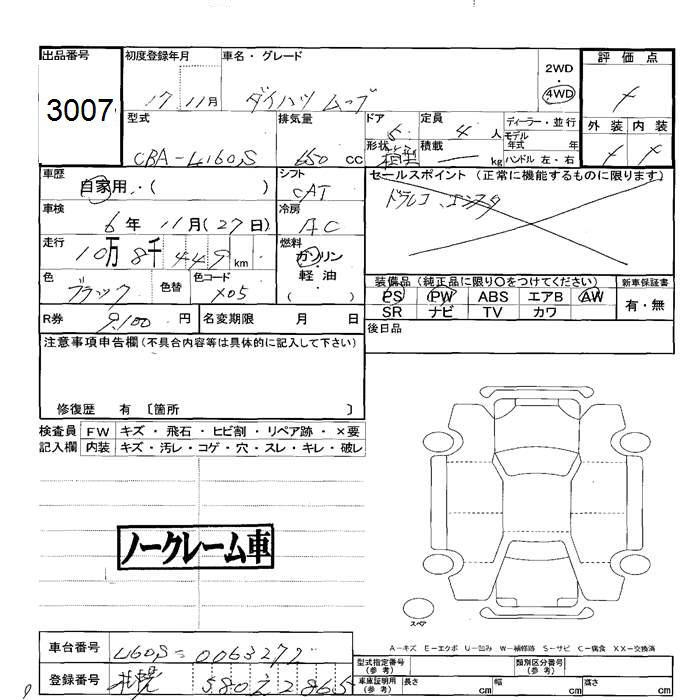 出品番号 3007
初度登録年月 17 11月
車名・グレード ダイハツ ムーブ
2WD・4WD
評価点
型式 CBA-L160S
排気量 650 cc
ドア 5
定員 4 人
ディーラー・並行
形状 箱型
積載 — kg
モデル年式 年
ハンドル 左・右
外装 内装
車歴 自家用・( )
シフト CAT
セールスポイント (正常に機能するものに限ります)
ドラレコ、エンスタ
車検 6年 11月(27日)
冷房 AC
走行 10万8千449 km
燃料 ガソリン・軽油・( )
色 ブラック 色替
色コード X05
装備品 (純正品に限り○をつけてください)
新車保証書
PS PW ABS エアB AW
有・無
SR ナビ TV カワ
R券 9,100 円
名変期限 月 日
後日品
注意事項申告欄 (不具合内容等は具体的に記入して下さい)
修復歴 有 〔箇所 〕
検査員記入欄
FW キズ・飛石・ヒビ割・リペア跡・×要
内装 キズ・汚レ・コゲ・穴・スレ・キレ・破レ
ノークレーム車
スペア
A-キズ E-エクボ U-凹み W-補修跡 S-サビ C-腐食 XX-交換済
車台番号 L160S-0063272
型式指定番号(参考)
類別区分番号(参考)
登録番号 札幌 580 こ 2865
車庫証明用(参考) 長さ cm 幅 cm 高さ cm